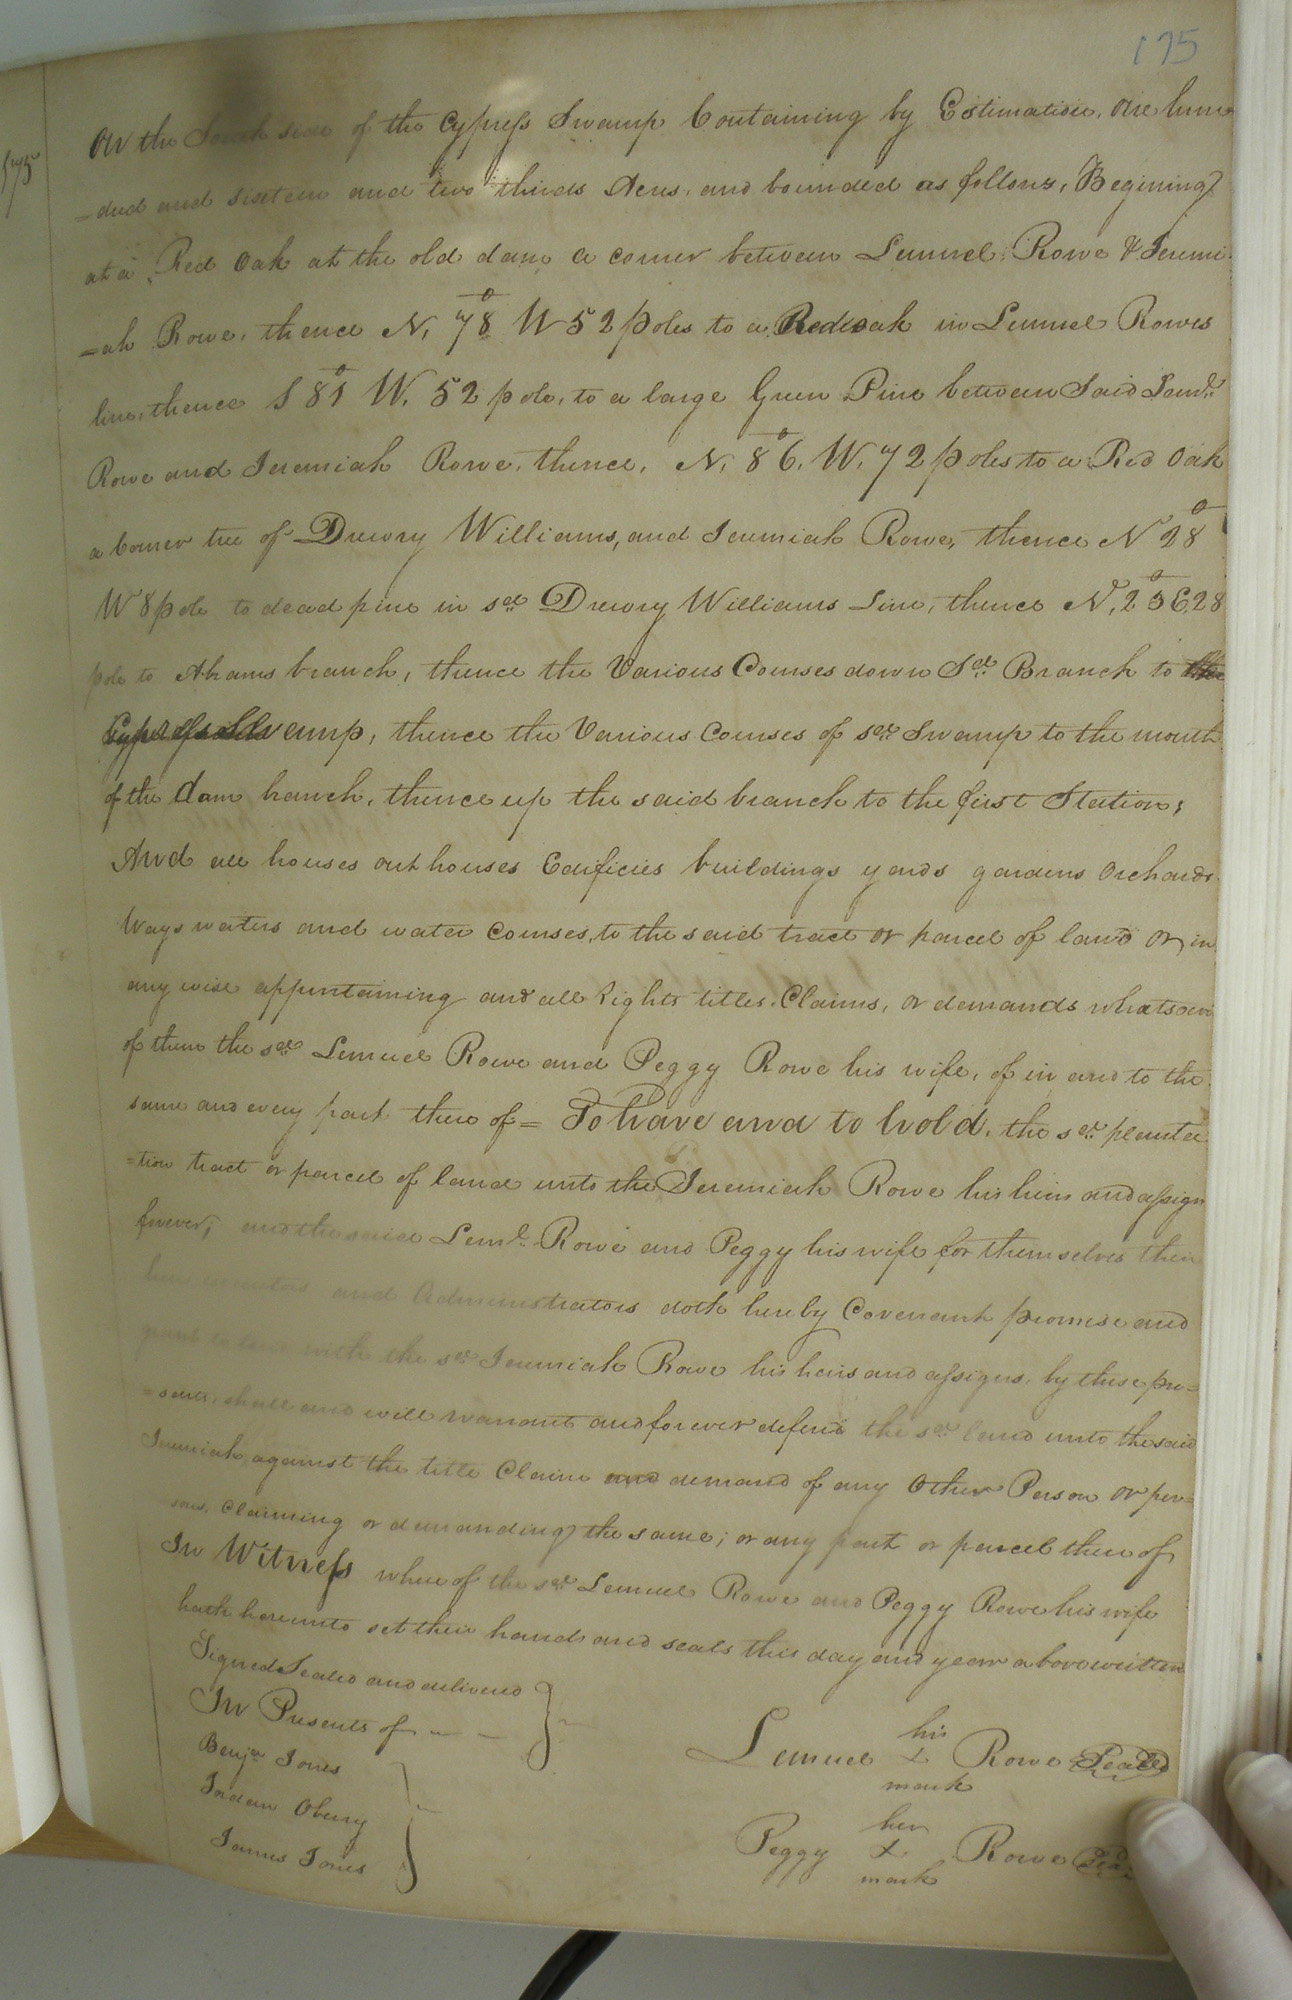 175
175
On the South side of the Cypress Swamp Containing by Estimation, One hun
=dred and sixteen and two thirds Acres, and bounded as follows, Begining
at a Red Oak at the old dam a corner between Lemuel Rowe & Jeremi
=ah Rowe, thence N, 78° W 52 poles to a Redoak in Lemuel Rowes
line, thence S 81° W. 52 pole, to a large Green Pine between Said Leml.
Rowe and Jeremiah Rowe, thence, N, 86°. W, 72 poles to a Red Oak
a Corner tree of Drewry Williams, and Jeremiah Rowe, thence N 28°
W 8 pole to dead pine in sd. Drewry Williams Line, thence N, 25° E, 28
pole to Abrams branch, thence the Various Courses down Sd. Branch to the
Cypress Swamp, thence the Various Courses of sd. Swamp to the mouth
of the dam branch, thence up the said branch to the first Station;
And all houses out houses Edificies buildings yards gardens Orchards
Ways waters and water Courses, to the said tract or parcel of land or in
any wise appurtaining and all Rights titles, Claims, or demands whatsoever
of them the sd. Lemuel Rowe and Peggy Rowe his wife, of in and to the
same and every part there of = To have and to hold, the sd. planta
=tion tract or parcel of land unto the Jeremiah Rowe his heirs and assigns
forever; and the said Leml. Rowe and Peggy his wife for themselves their
heirs executors and Administrators doth hereby Covenant promise and
grant to and with the sd. Jeremiah Rowe his heirs and assigns, by these pre=
=sents, shall and will warrant and forever defend the sd. land unto the said
Jeremiah, against the title Claim and demand of any Other Person or per=
sons, claiming or demanding the same; or any part or parcel there of
In Witness where of the sd. Lemuel Rowe and Peggy Rowe his wife
hath hereunto set their hands and seals this day and year above written
Signed Sealed and delivered
In Presents of
Benja Jones
Jordan Oberry
James Jones
his
Lemuel X Rowe Seal
mark
her
Peggy X Rowe Seal
mark